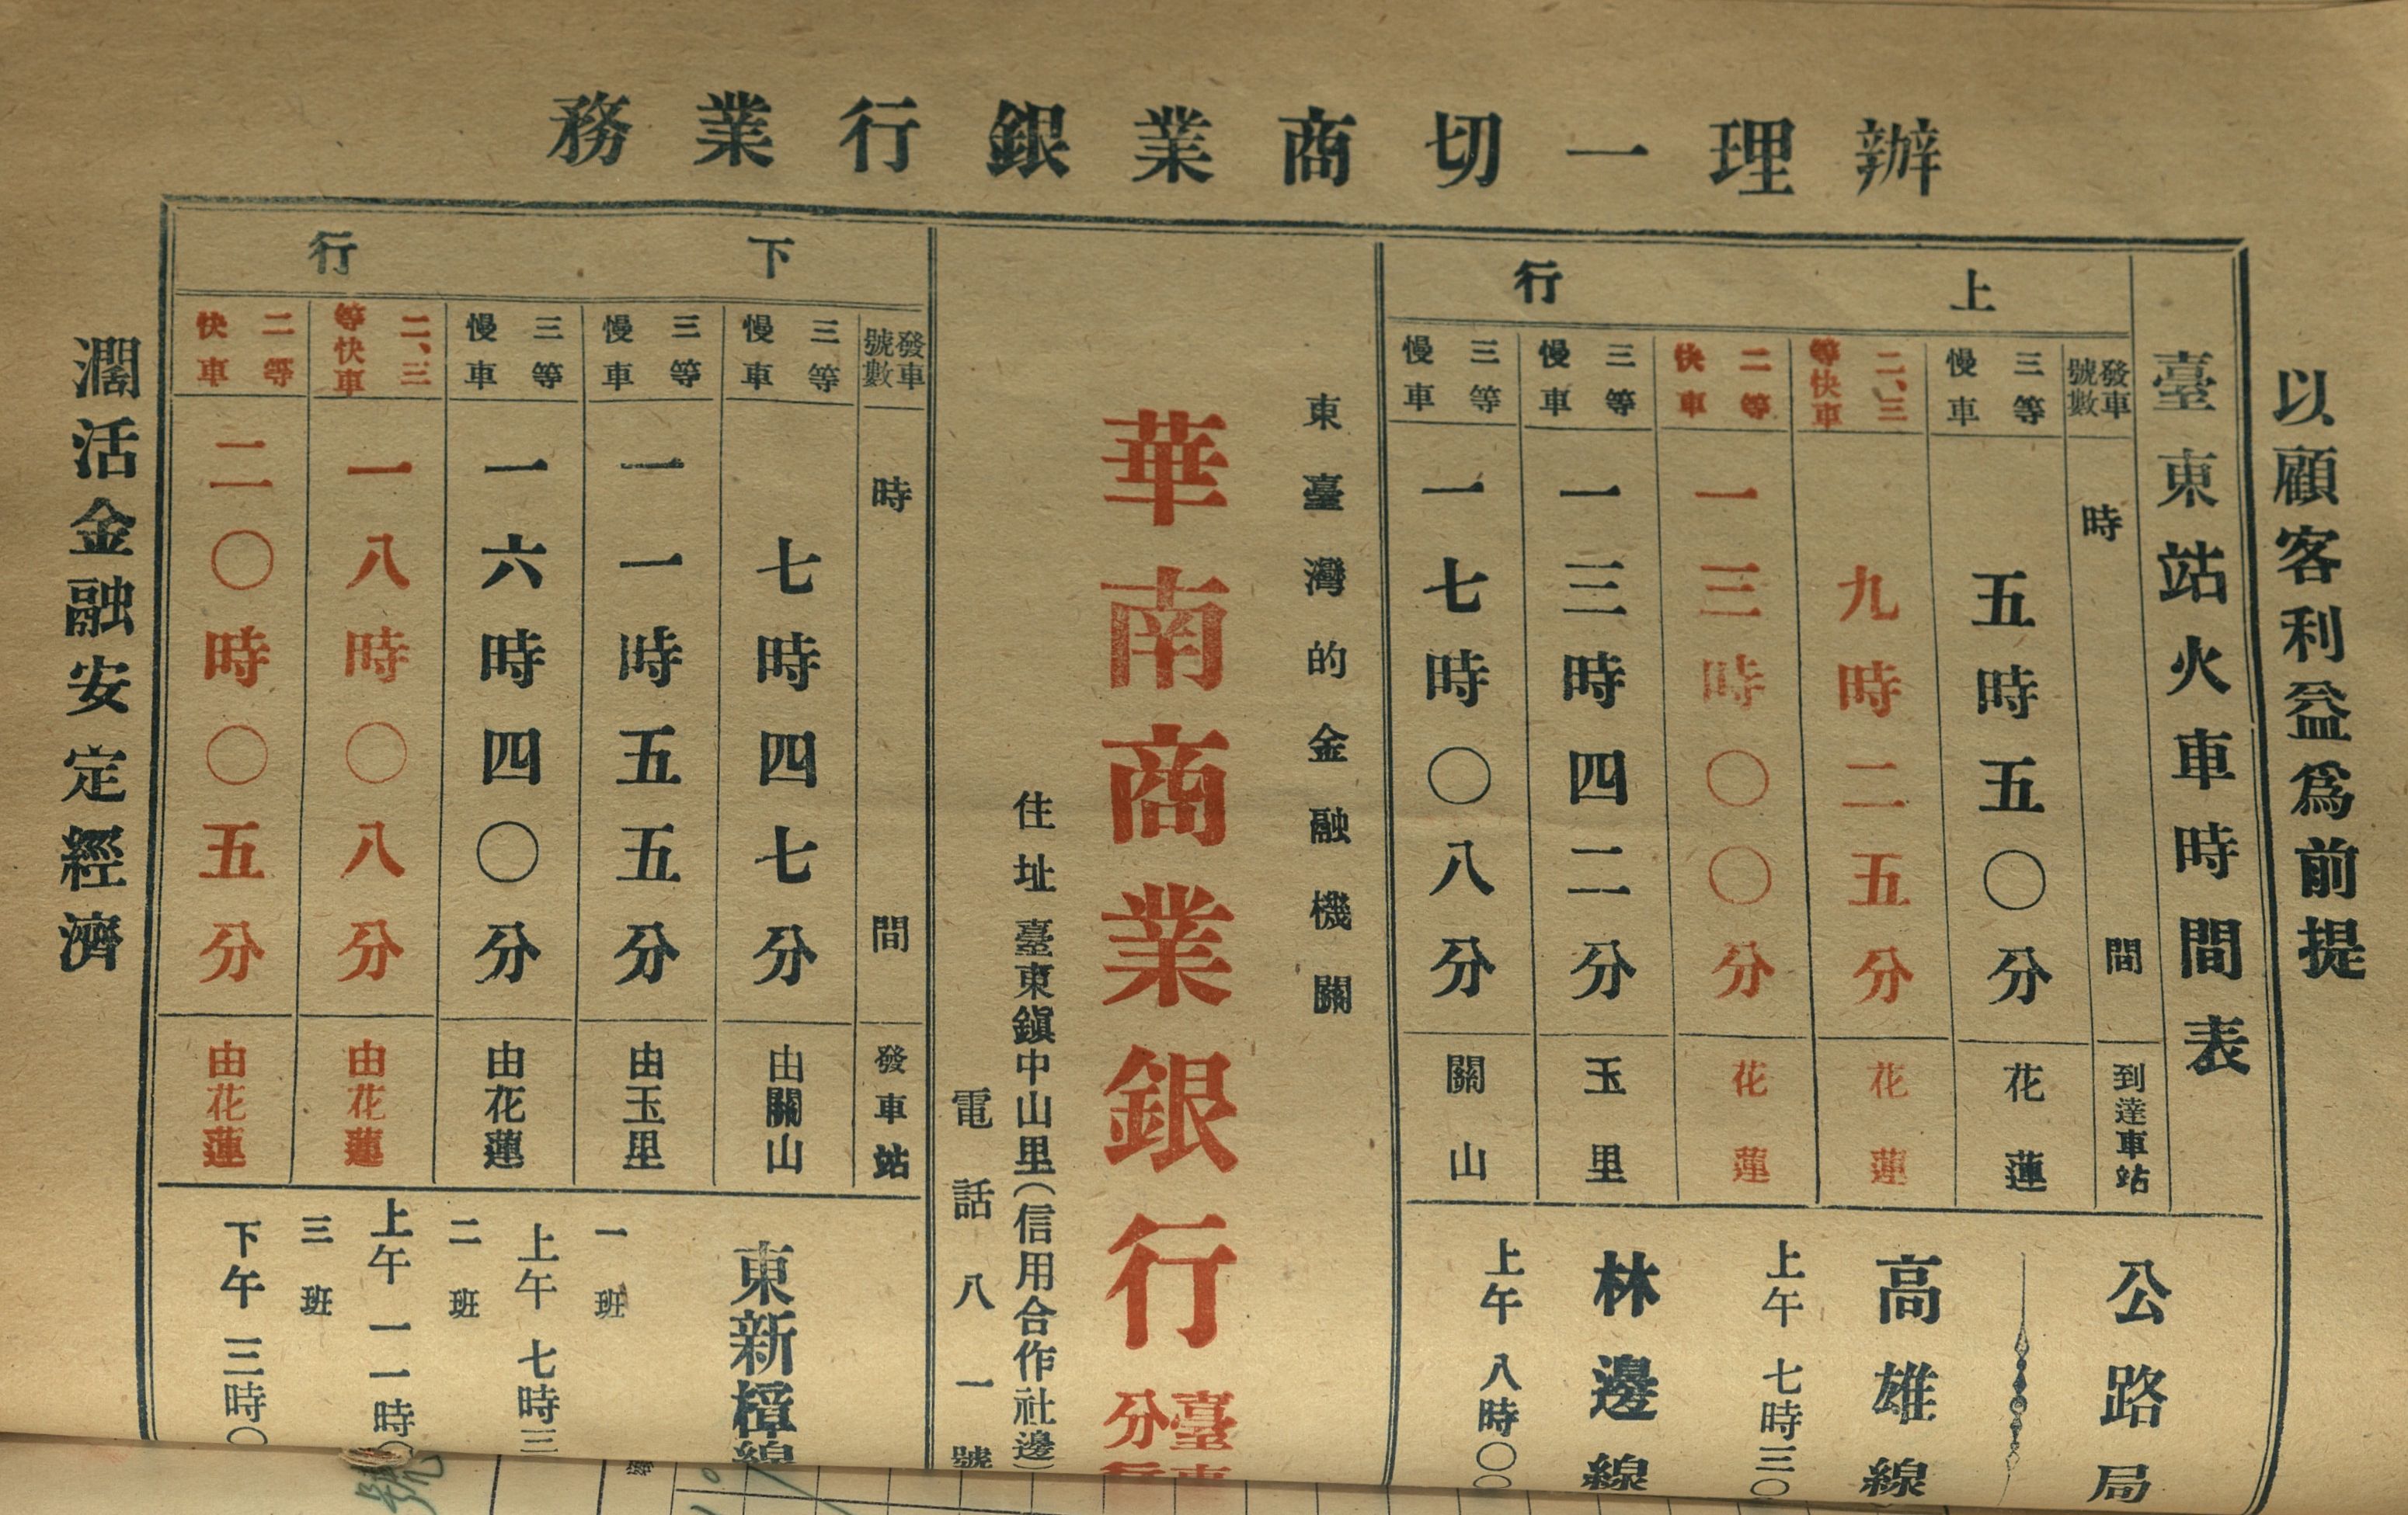 辦理一切商業銀行業務
以顧客利益爲前提
臺東站火車時間表
上行
發車號數 時間 到達車站
三等慢車 五時五〇分 花蓮
二、三等快車 九時二五分 花蓮
二等快車 一三時〇〇分 花蓮
三等慢車 一三時四二分 玉里
三等慢車 一七時〇八分 關山
公路局
高雄線
上午 七時三〇
林邊線
上午 八時〇〇
東臺灣的金融機關
華南商業銀行臺東分行
住址 臺東鎭中山里(信用合作社邊)
電話八一號
下行
發車號數 時間 發車站
三等慢車 七時四七分 由關山
三等慢車 一一時五五分 由玉里
三等慢車 一六時四〇分 由花蓮
二、三等快車 一八時〇八分 由花蓮
二等快車 二〇時〇五分 由花蓮
東新樟線
一班
上午 七時三
二班
上午 一一時〇
三班
下午 三時〇
濶活金融安定經濟
號